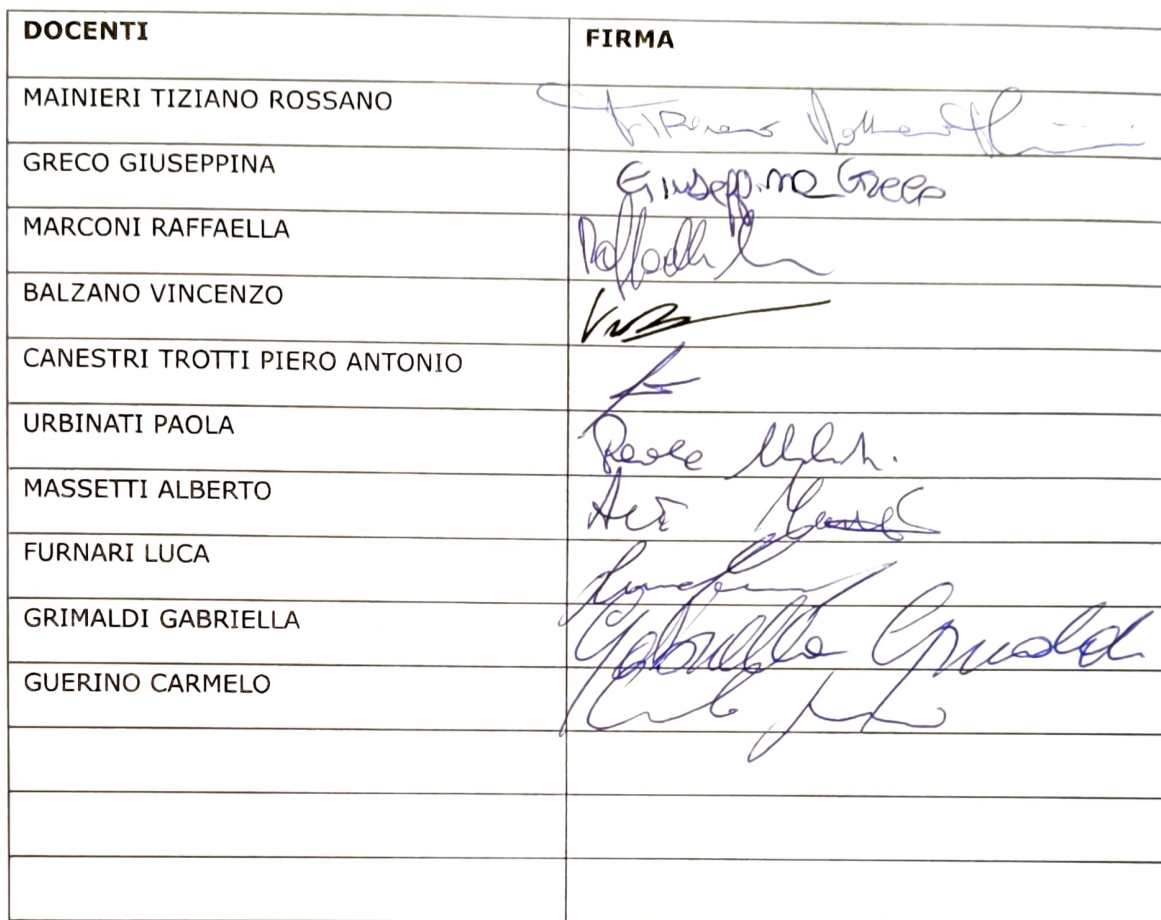 DOCENTI FIRMA
MAINIERI TIZIANO ROSSANO
GRECO GIUSEPPINA Giuseppina Greco
MARCONI RAFFAELLA Raffaella
BALZANO VINCENZO
CANESTRI TROTTI PIERO ANTONIO
URBINATI PAOLA Paola
MASSETTI ALBERTO
FURNARI LUCA
GRIMALDI GABRIELLA Gabriella Grimaldi
GUERINO CARMELO